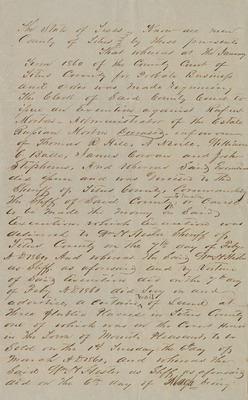 The State of Texas Know all men
County of Titus by these presents
That whereas at the January
Term 1860 of the County Court of
Titus County for Probate Business
and order was made requiring
The Clerk of Said County Court to
issue an Execution against
Morton Administrator of the Estate
Morton Deceased in favour
of Thomas R Hill, A Neville, William
C Batte, James Corvan and John
Stephens, And Whereas Said Execution
did issue and was directed to the
Sheriff of Titus County, Commanding
the Sheriff of Said County to Cause
to be Made the Money in Said
Execution which Execution was
received by Wm H Hester Sheriff of
Titus County on the 7th day of Feby
AD 1860, And whereas the Said Wm H Hester
as Sheriff as aforesaid and by Virtue
of Said Execution did on the day
of Feby AD 1860 did levy on and
advertise a certain Tract of Land at
Three Public Places in Titus County
one of which was on the Court House
in the Town of Mount Pleasant, to be
Sold on the 1st Tuesday the 6 day of
March AD 1860, And whereas the
Said Wm H Hester as Sheriff as aforesaid
did on the 6th day of March being